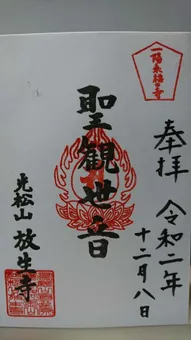 一陽来福の寺
奉拝
令和二年
十二月八日
聖観世音
光松山
放生寺